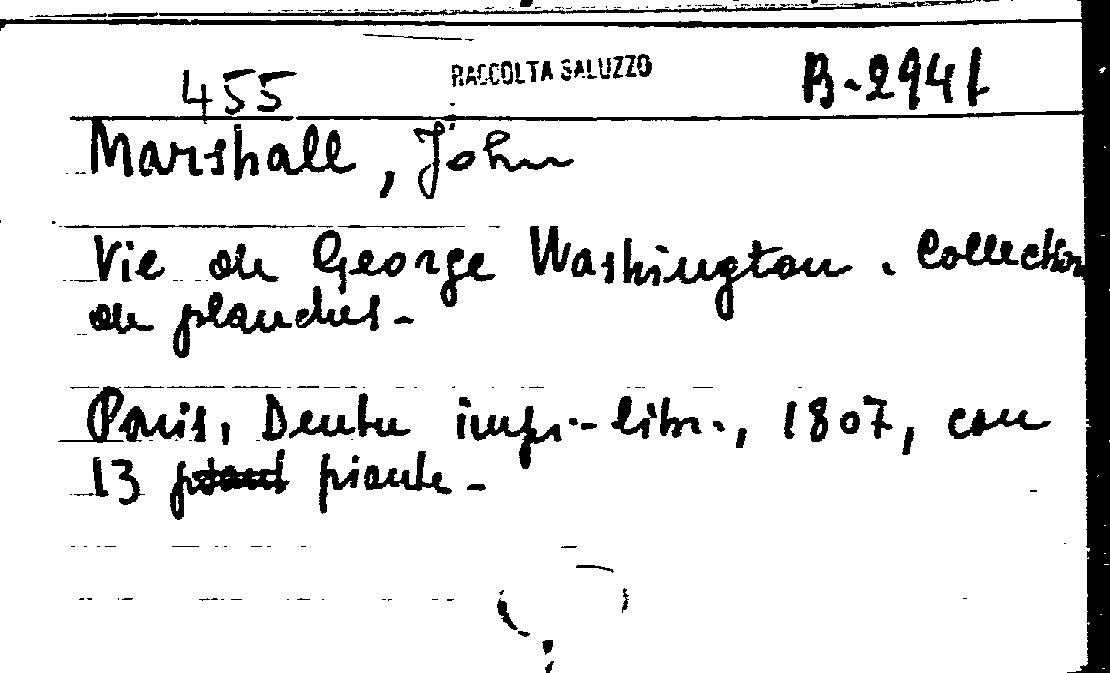 455 RACCOLTA SALUZZO B-2941
Marshall, John
Vie de George Washington. Collection
de planches.-
Paris, Dentu impr.-libr., 1807, con
13 piante.-